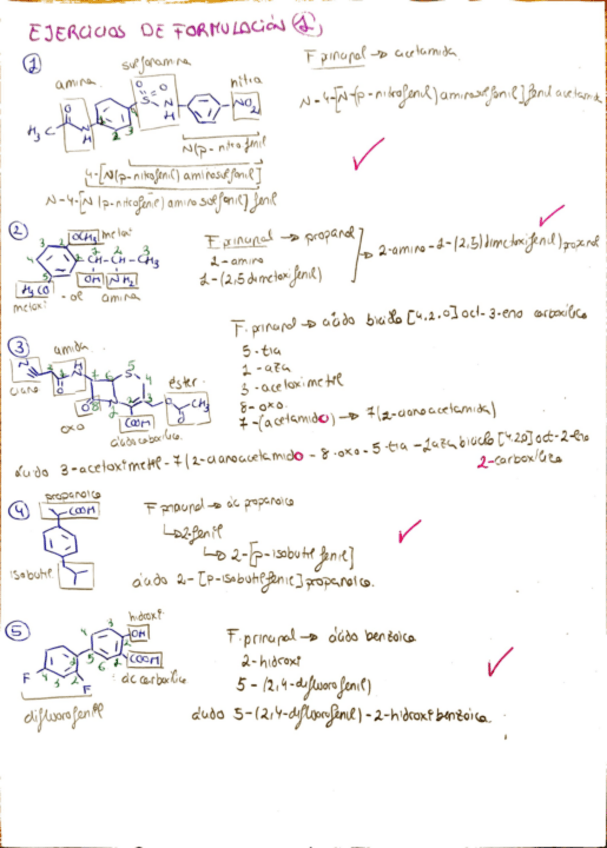 EJERCICIOS DE FORMULACIÓN (1)
① 
sulfonamina
amina
nitro
F principal → acetamida
N-4-[N-(p-nitrofenil)aminosulfonil]fenil acetamida
H₃C O N H S O O N H NO₂
N(p-nitrofenil
4-[N(p-nitrofenil)aminosulfonil]
N-4-[N(p-nitrofenil)aminosulfonil]fenil
②
OCH₃ metoxi
CH-CH-CH₃
OH NH₂
H₃CO
metoxi -ol amina
F principal → propanol
2-amino
1-(2,5 dimetoxifenil)
2-amino-1-(2,5)dimetoxifenil)propanol
③
amida
ciano
oxo
COOH
ácido carboxílico
éster
CH₃
F. principal → ácido biciclo [4.2.0]oct-3-eno carboxílico
5-tia
1-aza
3-acetoximetil
8-oxo
7-(acetamido) → 7(2-cianoacetamida)
ácido 3-acetoximetil-7(2-cianoacetamido-8-oxo-5-tia-1azabiciclo[4.2.0]oct-2-eno
2-carboxílico
④
propanoico
COOH
isobutil
F principal → ác propanoico
↳ 2-fenil
↳ 2-[p-isobutilfenil]
ácido 2-[p-isobutilfenil]propanoico.
⑤
hidroxi
OH
COOH
ác carboxílico
F
F
difluorofenil
F. principal → ácido benzoico
2-hidroxi
5-(2,4-difluorofenil)
ácido 5-(2,4-difluorofenil)-2-hidroxibenzoico.